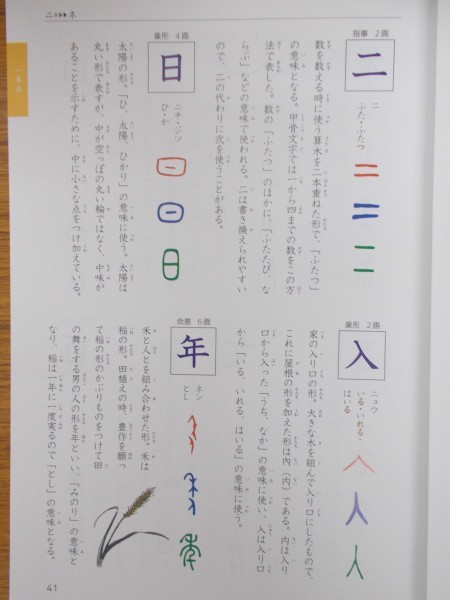 ニ▶▶▶ネ
一年生
指事 2画
二
ニ
ふた・ふたつ
数を数える時に使う算木を二本重ねた形で、「ふたつ」
の意味となる。甲骨文字では一から四までの数をこの方
法で表した。数の「ふたつ」のほかに、「ふたたび、な
らぶ」などの意味で使われる。二は書き換えられやすい
ので、二の代わりに弐を使うことがある。
象形 4画
日
ニチ・ジツ
ひ・か
太陽の形。「ひ、太陽、ひかり」の意味に使う。太陽は
丸い形で表すが、中が空っぽの丸い輪ではなく、中味が
あることを示すために、中に小さな点をつけ加えている。
象形 2画
入
ニュウ
いる・いれる・
はいる
家の入り口の形。大きな木を組んで入り口にしたもので、
これに屋根の形を加えた形は内(内)である。内は入り
口から入った「うち、なか」の意味に使い、入は入り口
から「いる、いれる、はいる」の意味に使う。
会意 6画
年
ネン
とし
禾と人とを組み合わせた形。禾は
稲の形。田植えの時、豊作を願っ
て稲の形のかぶりものをつけて田
の舞をする男の人の形を年といい、「みのり」の意味と
なり、稲は一年に一度実るので「とし」の意味となる。
41